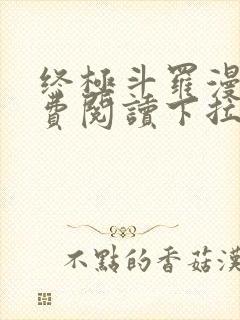 终極斗羅漫
費閱讀下拉
不點的香菇漢